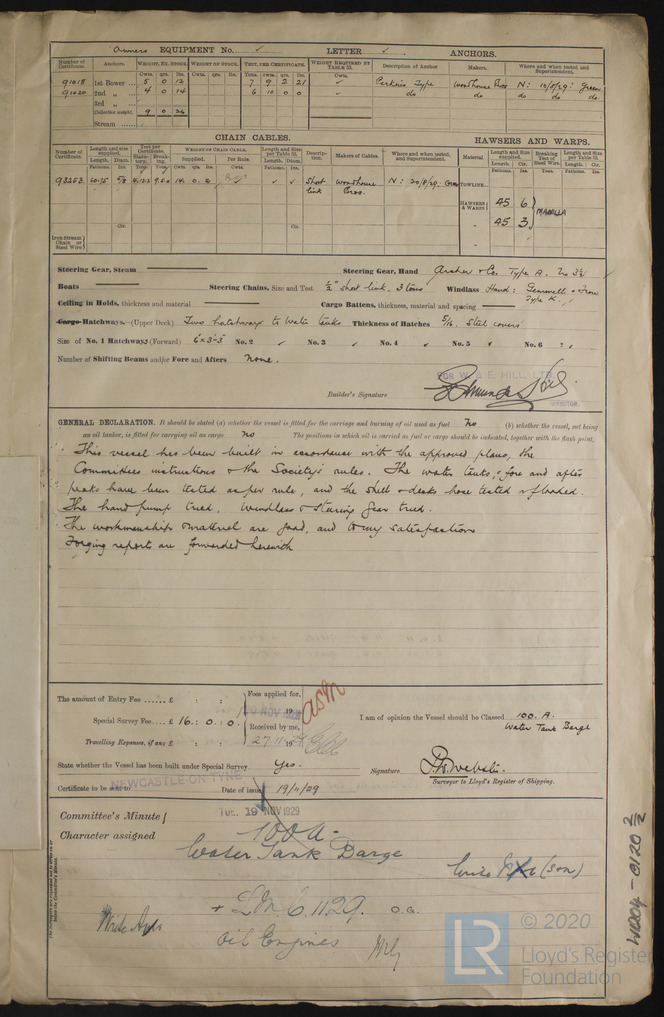 Owners EQUIPMENT No. ✓ LETTER ✓ ANCHORS.
Number of Certificate. Anchors. WEIGHT, EX. STOCK. WEIGHT OF STOCK. TEST, PER CERTIFICATE. WEIGHT REQUIRED BY TABLE 53. Description of Anchor Makers. Where and when tested and Superintendent.
Cwts. qrs. lbs. Cwts. qrs. lbs. Tons. cwts. qrs. lbs. Cwts.
91018 1st Bower 5 0 12 7 9 2 21 ✓ Perkins Type Woodhouse Bros N: 10/8/29: Green
91020 2nd „ 4 0 14 6 10 0 0 ✓ do do do do.
3rd „
Collective weight 9 0 26
Stream
CHAIN CABLES. HAWSERS AND WARPS.
Number of Certificate. Length and size supplied. Test per Certificate. WEIGHT OF CHAIN CABLE. Length and size per Table 53. Description. Makers of Cables. Where and when tested, and Superintendent. Material. Length and Size supplied. Breaking Test of Steel Wire. Length and Size per Table 53.
Length. Diam. Statutory. Breaking. Supplied. Per Rule. Length. Diam. Length. Cir. Length. Cir.
93253 60.75 5/8 Short link Woodhouse Bros. N: 20/8/29. Green TOWLINE
HAWSERS & WARPS 45 6 MANILLA
„ 45 3
Iron Stream Chain or Steel Wire
Steering Gear, Steam Steering Gear, Hand Archer & Co. Type A. No 3½
Boats Steering Chains, Size and Test ½" Short link. 3 tons Windlass Hand: Type K.
Ceiling in Holds, thickness and material Cargo Battens, thickness, material and spacing
Cargo Hatchways. (Upper Deck) Two hatchways to water tanks Thickness of Hatches 5/16. Steel covers
Size of No. 1 Hatchways (Forward) 6'×3'-3" No. 2 ✓ No. 3 ✓ No. 4 ✓ No. 5 ✓ No. 6
Number of Shifting Beams and/or Fore and Afters none.
FOR W. & E. HILL LTD.
Builder's Signature
DIRECTOR.
GENERAL DECLARATION. It should be stated (a) whether the vessel is fitted for the carriage and burning of oil used as fuel no (b) whether the vessel, not being
an oil tanker, is fitted for carrying oil as cargo no The positions in which oil is carried as fuel or cargo should be indicated, together with the flash point.
This vessel has been built in accordance with the approved plans, the
Committees instructions & the Society's rules. The water tanks, fore and after
peaks have been tested as per rule, and the shell & decks hose tested & flooded.
The hand pump tried, windlass & Steering gear tried.
The workmanship & material are good, and to my satisfaction
Forging reports are forwarded herewith
The amount of Entry Fee £ : : Fees applied for,
NOV 1929
Special Survey Fee £ 16 : 0 : 0 Received by me,
Travelling Expenses, if any £ : : 27.11.29
I am of opinion the Vessel should be Classed 100. A.
Water Tank Barge
State whether the Vessel has been built under Special Survey Yes.
Signature
Surveyor to Lloyd's Register of Shipping.
NEWCASTLE-ON-TYNE
Certificate to be sent to Date of issue 19/11/29
TUE. 19 NOV 1929
Committee's Minute
Character assigned
100 A.
Water Tank Barge
+ LMC 6.11.29. O.G.
Write
Oil Engines
W1204-0120 2/2
© 2020
LR
Lloyd's Register
Foundation